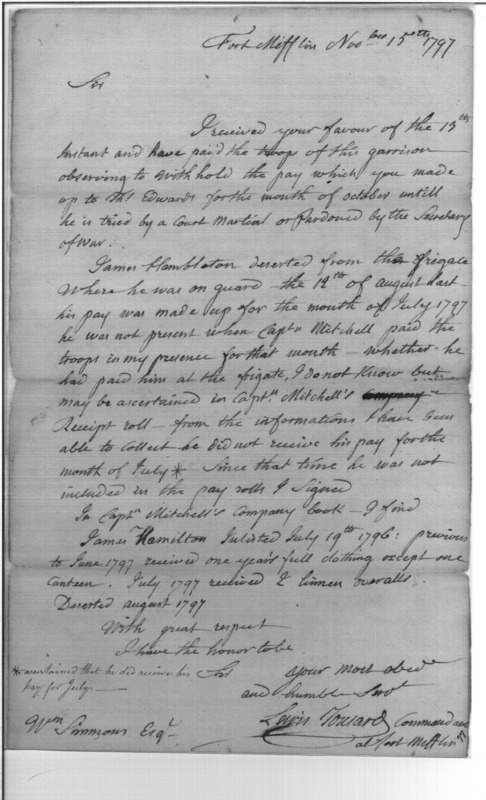 Fort Mifflin Novber 15th 1797
Sir
I received your favour of the 13th
Instant and have paid the troop of this garrison
observing to withhold the pay which you made
up to Ths Edwards for the month of october untill
he is tried by a Court Martial or Pardoned by the Secretary
of War:
James Hambleton deserted from the frigate
Where he was on guard the 12th of august last
his pay was made up for the month of July 1797
he was not present when Captn Mitchell paid the
troops in my presence for that month – whether he
had paid him at the frigate, I do not Know but
may be ascertained in Captn Mitchell's company
Receipt roll – from the informations I have been
able to collect he did not receive his pay for the
month of July * Since that time he was not
included in the pay rolls I signed
In Captn Mitchell's Company book – I find
James Hamilton Inlisted July 19th 1796: previous
to June 1797 received one year's full clothing except one
Canteen. July 1797 received 2 linnen overalls.
Deserted august 1797
With great respect
I have the honor to be
* ascertained that he did receive his
pay for July.
Sir
your most obed
and humble Servt
Lewis Tousard Commandant
at fort Mifflin
Wm
Simmons Esqr